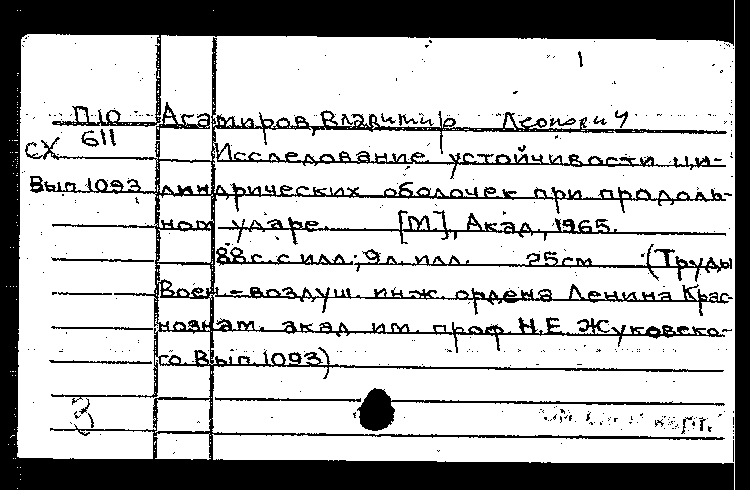 1
П10 Агамиров, Владимир Леонович
611
СХ Исследование устойчивости ци-
Вып.1093 линдрических оболочек при продоль-
ном ударе. [М.], Акад., 1965.
88с. с илл.; 9л. илл. 25см (Труды
Воен-воздуш. инж. ордена Ленина Крас
нознам. акад им. проф Н.Е. Жуковско-
го. Вып. 1093)
3